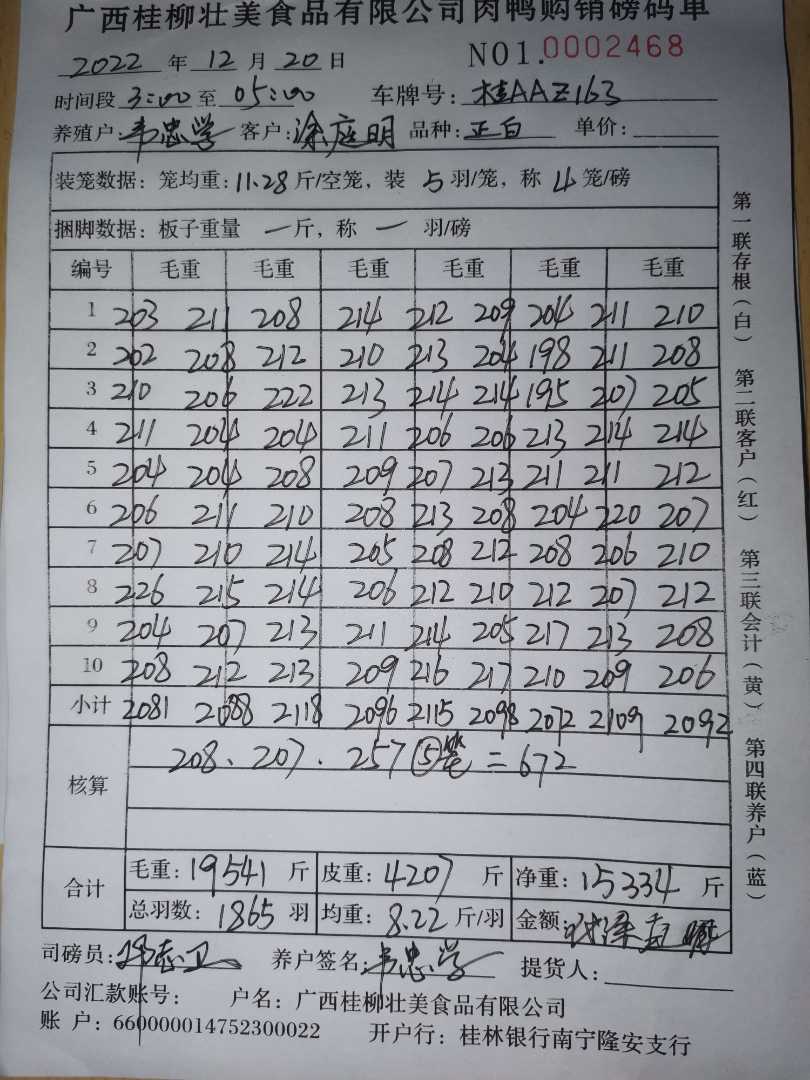 广西桂柳壮美食品有限公司肉鸭购销磅码单
2022 年 12 月 20 日 NO1.0002468
时间段 3:00 至 05:00 车牌号: 桂AAZ163
养殖户: 韦忠学 客户: 涂庭明 品种: 正白 单价:
装笼数据: 笼均重: 11.28 斤/空笼, 装 5 羽/笼, 称 4 笼/磅
捆脚数据: 板子重量 一 斤, 称 一 羽/磅
编号 毛重 毛重 毛重 毛重 毛重 毛重
1 203 211 208 214 212 209 204 211 210
2 202 208 212 210 213 204 198 211 208
3 210 206 222 213 214 214 195 207 205
4 211 204 204 211 206 206 213 214 214
5 204 204 208 209 207 213 211 211 212
6 206 211 210 208 213 208 204 220 207
7 207 210 214 205 208 212 208 206 210
8 226 215 214 206 212 210 212 207 212
9 204 207 213 211 214 205 217 213 208
10 208 212 213 209 216 217 210 209 206
小计 2081 2088 2118 2096 2115 2098 2072 2109 2092
核算 208、207、257 ⑤笼 = 672
合计 毛重: 19541 斤 皮重: 4207 斤 净重: 15334 斤
总羽数: 1865 羽 均重: 8.22 斤/羽 金额:
司磅员: 养户签名: 韦忠学 提货人:
公司汇款账号: 户名: 广西桂柳壮美食品有限公司
账 户: 660000014752300022 开户行: 桂林银行南宁隆安支行
第一联存根(白) 第二联客户(红) 第三联会计(黄) 第四联养户(蓝)